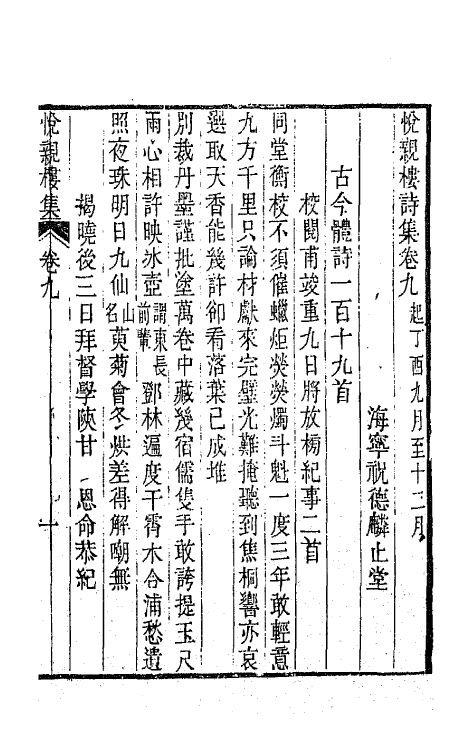 悅親樓詩集卷九起丁酉九月至十二月
海寧祝德麟止堂
古今體詩一百十九首
校閱甫竣重九日將放榜紀事二首
同堂衡校不須催蠟炬熒熒燭斗魁一度三年敢輕意
九方千里只論材獻來完璧光難掩聽到焦桐響亦哀
選取天香能幾許卻看落葉已成堆
別裁丹墨謹批塗萬卷中藏幾宿儒隻手敢誇提玉尺
雨心相許映冰壺謂東長前輩鄧林遍度干霄木合浦愁遺
照夜珠明日九仙山名萸菊會冬烘差得解嘲無
揭曉後三日拜督學陝甘 恩命恭紀
悅親樓集 卷九 一